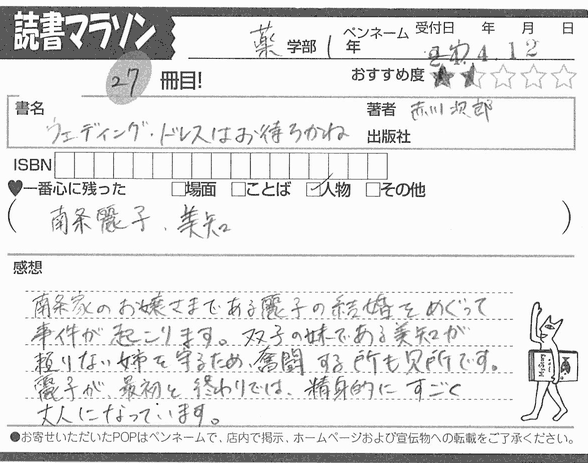 読書マラソン
薬 学部 1 年 ペンネーム 受付日 年 月 日
4.12
27 冊目! おすすめ度 ★★☆☆☆
書名 著者 赤川次郎
ウェディング・ドレスはお待ちかね 出版社
ISBN
♥一番心に残った □場面 □ことば ☑人物 □その他
(南条麗子、美知)
感想
南条家のお嬢さまである麗子の結婚をめぐって
事件が起こります。双子の妹である美知が
頼りない姉を守るため、奮闘する所も見所です。
麗子が、最初と終わりでは、精身的にすごく
大人になっています。
Mystery
●お寄せいただいたPOPはペンネームで、店内で掲示、ホームページおよび宣伝物への転載をご了承ください。